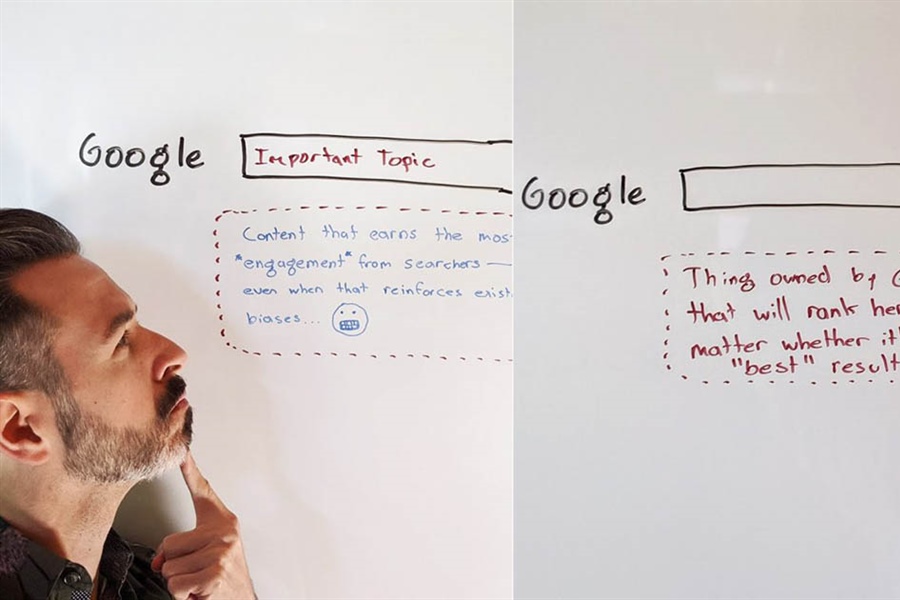 Google
Important Topic
Content that earns the
*engagement* from searchers —
even when that reinforces
biases...
Google
Thing owned by
that will rank
matter whether
"best" result